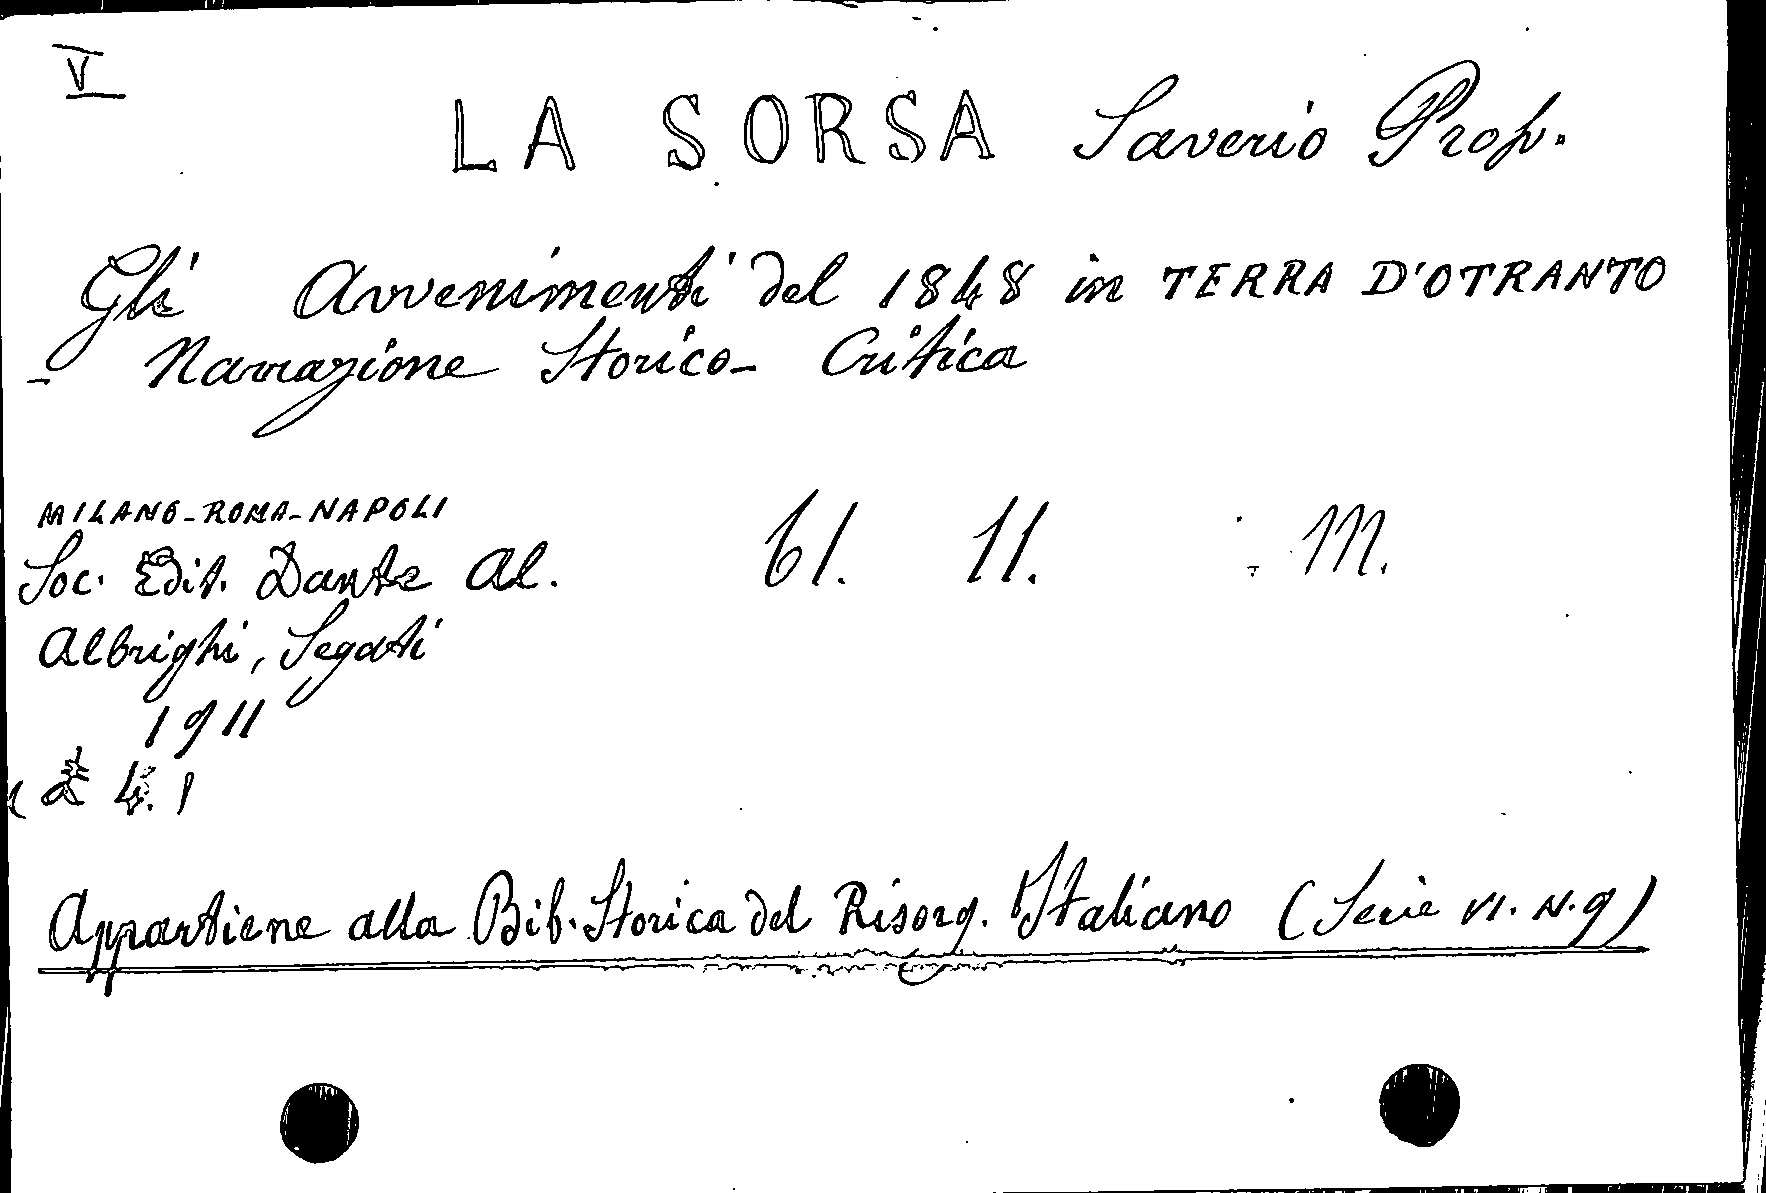 V
LA SORSA Saverio Prof.
Gli Avvenimenti del 1848 in TERRA D'OTRANTO
- Narrazione Storico-Critica
MILANO-ROMA-NAPOLI
Soc. Edit. Dante Al. 61. 11. M.
Albrighi, Segati
1911
Appartiene alla Bib. Storica del Risorg. Italiano (Serie VI. N. 9)